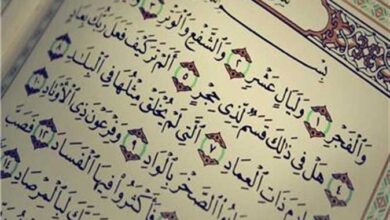 وَالْفَجْرِ ١ وَلَيَالٍ عَشْرٍ ٢ وَالشَّفْعِ وَالْوَتْرِ ٣
٤ هَلْ فِي ذَٰلِكَ قَسَمٌ لِّذِي حِجْرٍ ٥ أَلَمْ تَرَ كَيْفَ فَعَلَ رَبُّكَ بِعَادٍ
ذَاتِ الْعِمَادِ ٧ الَّتِي لَمْ يُخْلَقْ مِثْلُهَا فِي الْبِلَادِ ٨
الصَّخْرَ بِالْوَادِ ٩ وَفِرْعَوْنَ ذِي الْأَوْتَادِ ١٠
فَأَكْثَرُوا فِيهَا الْفَسَادَ ١٢ فَصَبَّ
لَبِالْمِرْصَادِ ١٤